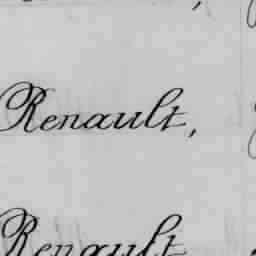 Renault,
Renault